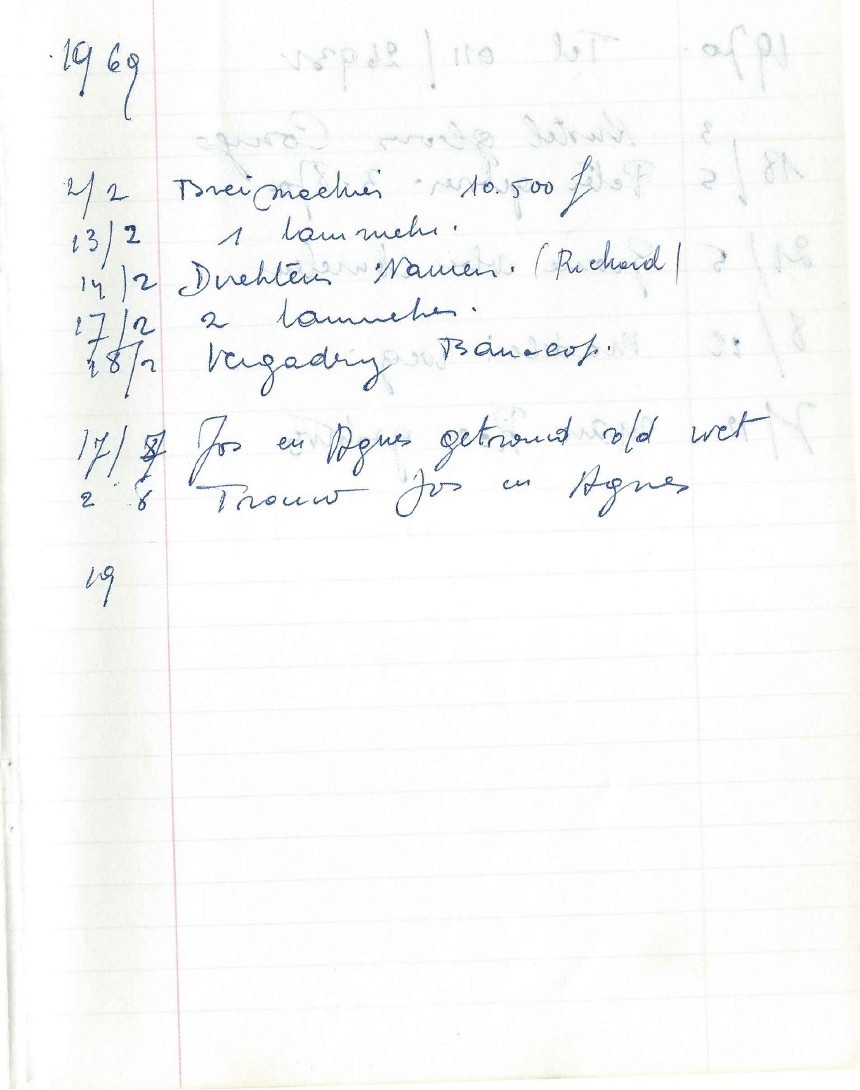 1969
2/2 Breimachien 10.500 f
13/2 1 lammeke.
14/2 Direkteur Namen. (Richard)
17/2 2 lammekes.
18/2 Vergadering
17/ Jos en Agnes getrouwd v/d wet
2 6 Trouw Jos en Agnes
19